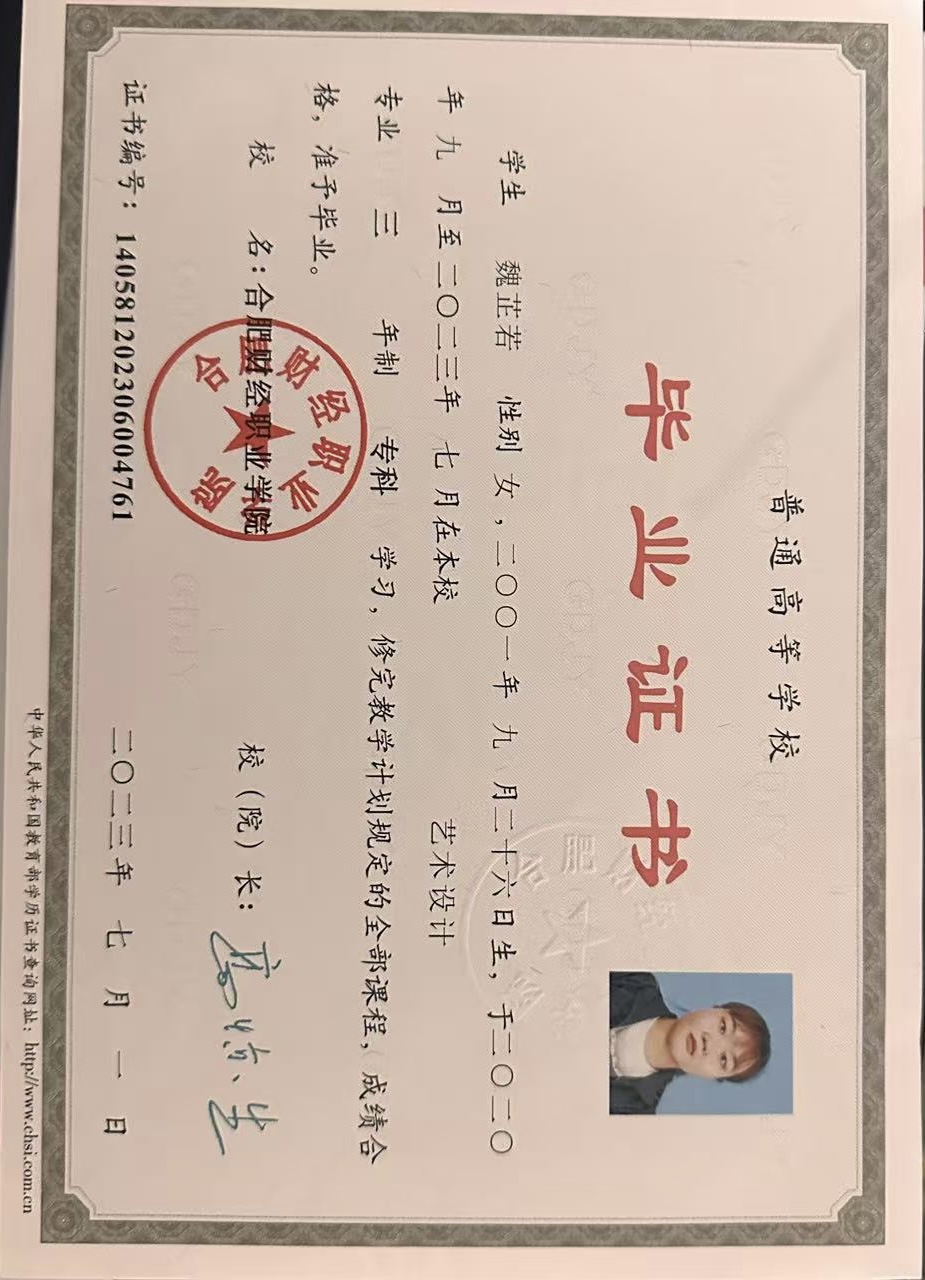 普通高等学校
毕业证书
学生 魏芷若 性别 女，二〇〇一年 九 月二十六日生，于二〇二〇
年 九 月至二〇二三年 七 月在本校 艺术设计
专业 三 年制 专科 学习，修完教学计划规定的全部课程，成绩合
格，准予毕业。
校 名：合肥财经职业学院
校（院）长：
证书编号：140581202306004761
二〇二三年 七 月 一 日
中华人民共和国教育部学历证书查询网址：http://www.chsi.com.cn